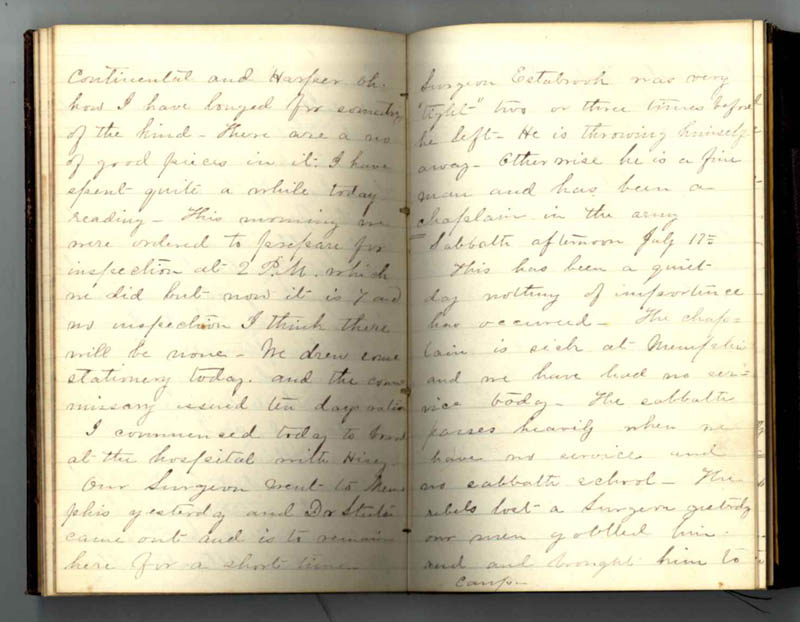 Continental and Harper Oh.
how I have longed for something
of the kind - There are a no
of good pieces in it. I have
spent quite a while today
reading - This morning we
were ordered to prepare for
inspection at 2 P.M. which
we did but now it is 7 and
no inspection I think there
will be none - We drew some
stationery today. and the com
missary issued ten days ration
I commensed today to board
at the hospital with Hisey
Our Surgeon went to Mem
phis yesterday and Dr
came out and is to remain
here for a short time
Surgeon Estabrook was very
"tight" two or three times before
he left - He is throwing himself
away - Otherwise he is a fine
man and has been a
chaplain in the army
Sabbath afternoon July 17=
This has been a quiet
day nothing of importence
has occured - The chap=
lain is sick at Memphis
and we have had no ser=
vice today - The sabbath
passes heavily when we
have no service and
no sabbath school - The
rebels lost a Surgeon yesterday
our men gobbled him
and and brought him to
camp -